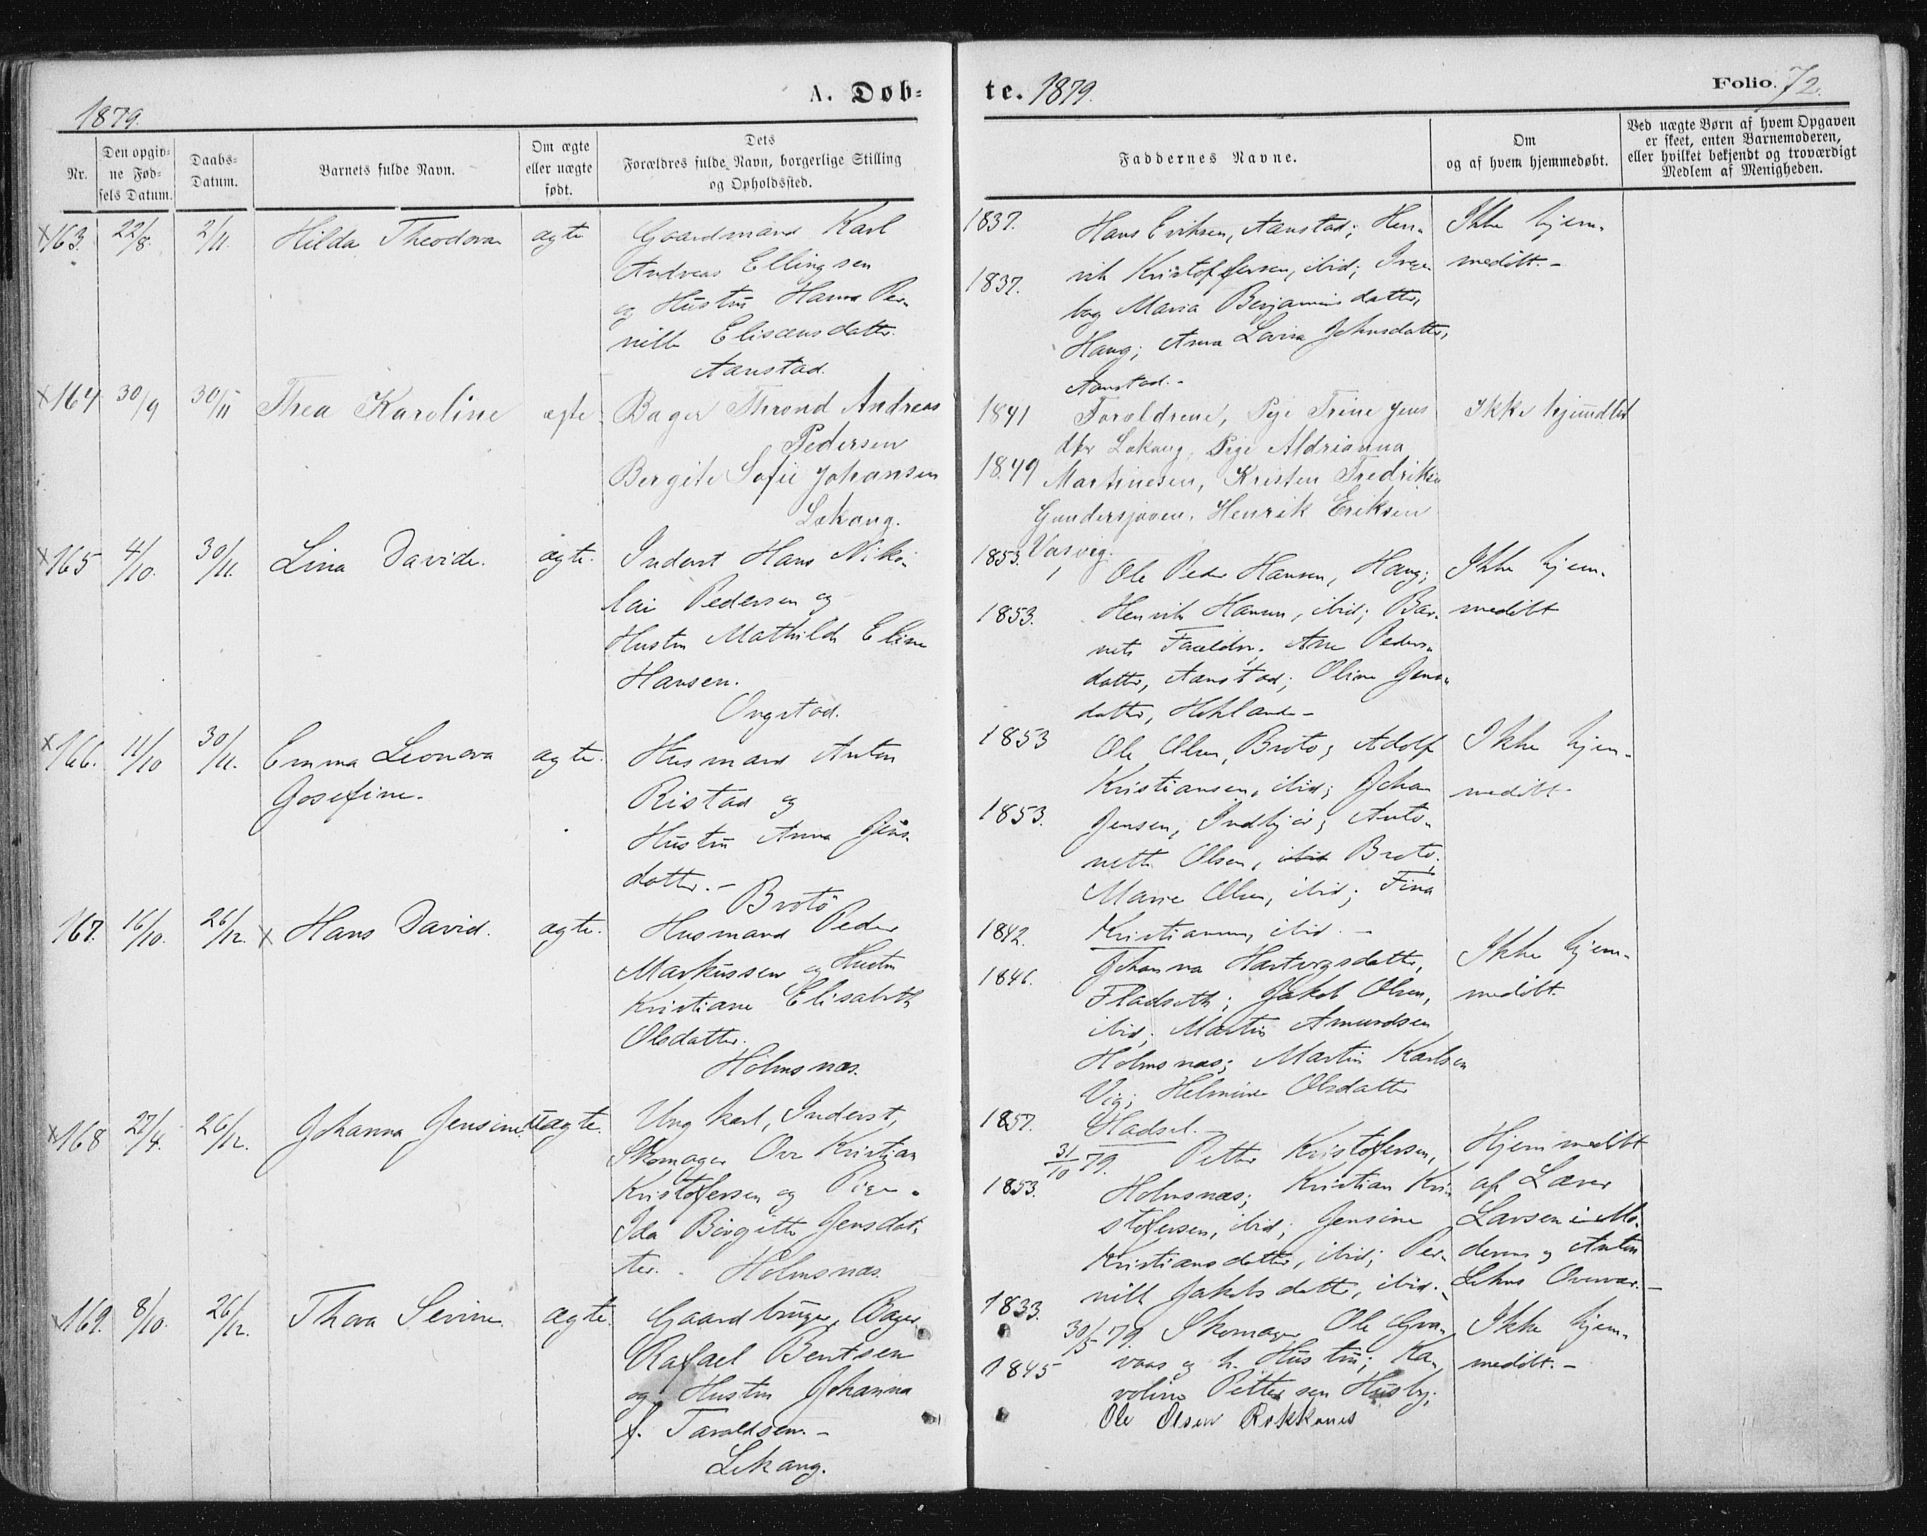 1879.
A. Døb-
te. 1879.
Folio. 72.
Nr.
Den opgiv-
ne Fød-
sels Datum.
Daabs-
Datum.
Barnets fulde Navn.
Om ægte
eller uægte
født.
Dets
Forældres fulde Navn, borgerlige Stilling
og Opholdssted.
Faddernes Navne.
Om
og af hvem hjemmedøbt.
Ved uægte Børn af hvem Opgaven
er skeet, enten Barnemoderen,
eller hvilket bekjendt og troværdigt
Medlem af Menigheden.
x163. 22/8. 2/11. Hilda Theodora ægte
Gaardmand Karl
Andreas Ellingsen
og Hustru Hanna Per-
nille Elisæusdatter.
Aanstad.
1837.
1837.
Hans Eriksen, Aanstad; Hen-
rik Kristoffersen, ibid; Inge-
borg Maria Benjaminsdatter,
Haug; Anna Lovisa Johnsdatter,
Aanstad.-
Ikke hjem-
medøbt.-
x164 30/9 30/11 Thea Karoline ægte
Bager Thrond Andreas
Pedersen
Bergite Sofie Johansen
Lekang.
1841
1849
Foreldrene, Pige Trine Jens
dtr Lekang, Pige Aldrianna
Martinesen, Kristen Fredriksen
Gundersjøen, Henrik Eriksen
Vasvig.
Ikke hjemdbt
x165 4/10. 30/11. Lina Davida. ægte.
Inderst Hans Niko-
lai Pedersen og
Hustru Mathilde Eline
Hansen.
Ongstad.
1853.
1853.
Ole Peder Hansen, Haug;
Henrik Hansen, ibid; Bar-
nets Forældre; Ane Peders-
datter, Aanstad; Oline Jens-
datter, Hekland-
Ikke hjem-
medøbt
x166. 11/10 30/11. Emma Leonora
Josefine.
ægte.
Husmand Anton
Ristad og
Hustru Anna Jens-
datter.-
Brotø
1853
1853.
Ole Olsen, Brotø; Adolf
Kristiansen, ibid; Johan
Jensen, Indbjør; Anto-
nette Olsen, ibid Brotø;
Marie Olsen, ibid; Fina
Kristiansen, ibid.-
Ikke hjem-
medøbt-
167. 16/10. 26/12. x Hans David. ægte.
Husmand Peder
Markussen og Hustru
Kristiane Elisabeth
Olsdatter.
Holmsnæs.
1842.
1846.
Johanna Hartvigsdatter,
Fladseth; Jakob Olsen,
ibid; Martin Amundsen
Holmsnæs; Martin Karlsen
Vig; Helmine Olsdatter
Hadsel.-
Ikke hjem-
medøbt.
x168 27/4. 26/12. Johanna Jensine. uægte.
Ung karl, Inderst,
Skomager Ove Kristjan
Kristofersen og Pige.
Ida Birgitte Jensdat-
ter. Holmsnæs.
1857.
31/10 79.
1853.
Petter Kristofersen,
Holmsnæs; Kristian Kri-
stofersen, ibid; Jensine
Kristiansdatter, ibid; Per-
nille Jakobsdatter, ibid.-
Hjemmedøbt
af Lærer
Larsen i Mo-
derens og Anton
Lekns Overvær.-
x169. 8/10. 26/12. Thora Sevine. ægte.
Gaardbruger, Bager
Rafael Bentsen
og Hustru Johanna
f. Taraldsen.-
Lekang.
1833.
30/5 79.
1845
Skomager Ole Gra-
vaas og h. Hustru; Ka-
roline Pettersen Husby;
Ole Olsen Rokkones
Ikke hjem-
medøbt.-